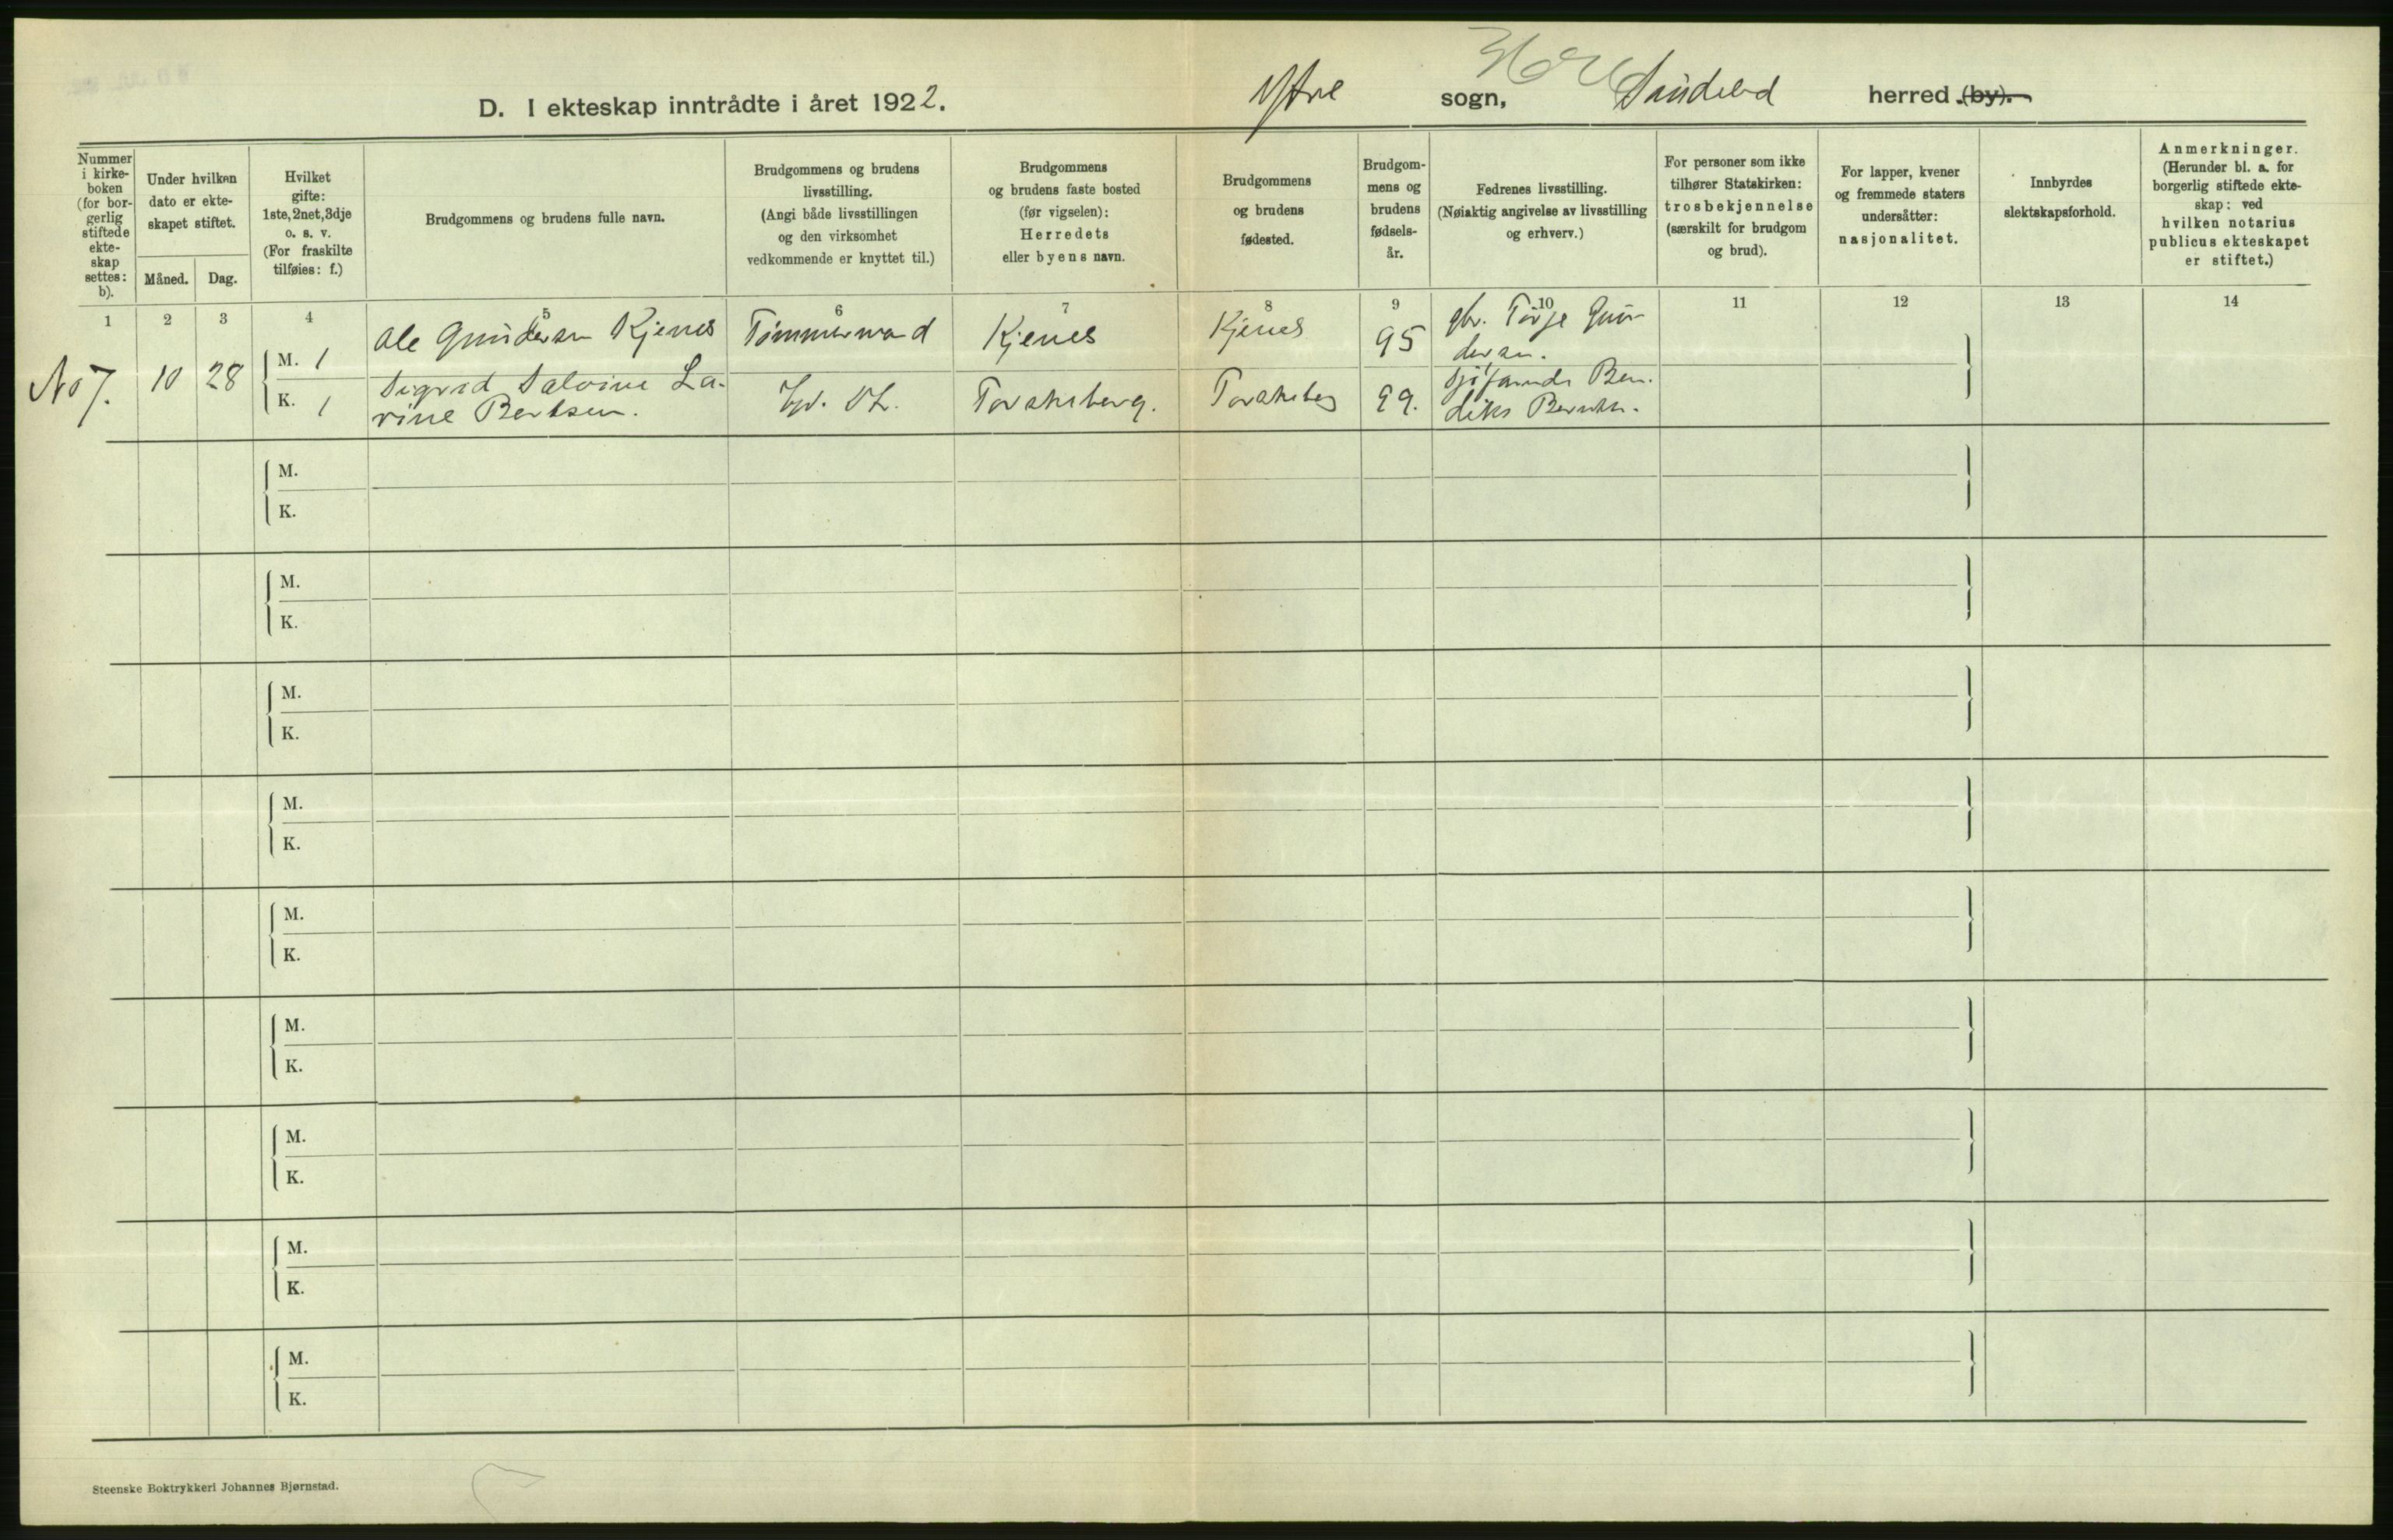 D. I ekteskap inntrådte i året 1922.
Ytre sogn, herred (by).
Nummer i kirke-boken (for bor-gerlig stiftede ekte-skap settes: b).
Under hvilken dato er ekte-skapet stiftet.
Måned.
Dag.
Hvilket gifte: 1ste, 2net, 3dje o. s. v. (For fraskilte tilføies: f.)
Brudgommens og brudens fulle navn.
Brudgommens og brudens livsstilling. (Angi både livsstillingen og den virksomhet vedkommende er knyttet til.)
Brudgommens og brudens faste bosted (før vigselen): Herredets eller byens navn.
Brudgommens og brudens fødested.
Brudgom-mens og brudens fødsels-år.
Fedrenes livsstilling. (Nøiaktig angivelse av livsstilling og erhverv.)
For personer som ikke tilhører Statskirken: trosbekjennelse (særskilt for brudgom og brud).
For lapper, kvener og fremmede staters undersåtter: nasjonalitet.
Innbyrdes slektskapsforhold.
Anmerkninger. (Herunder bl. a. for borgerlig stiftede ekte-skap: ved hvilken notarius publicus ekteskapet er stiftet.)
1 2 3 4 5 6 7 8 9 10 11 12 13 14
No 7. 10 28
M. 1 Ole Gundersen Kjenes Tømmermand Kjenes Kjenes 95 gbr. Torje Gun-
dersen.
K. 1 Sigrid Salvine La-
rine Bertsen. 99.
M.
K.
M.
K.
M.
K.
M.
K.
M.
K.
M.
K.
M.
K.
M.
K.
M.
K.
Steenske Boktrykkeri Johannes Bjørnstad.